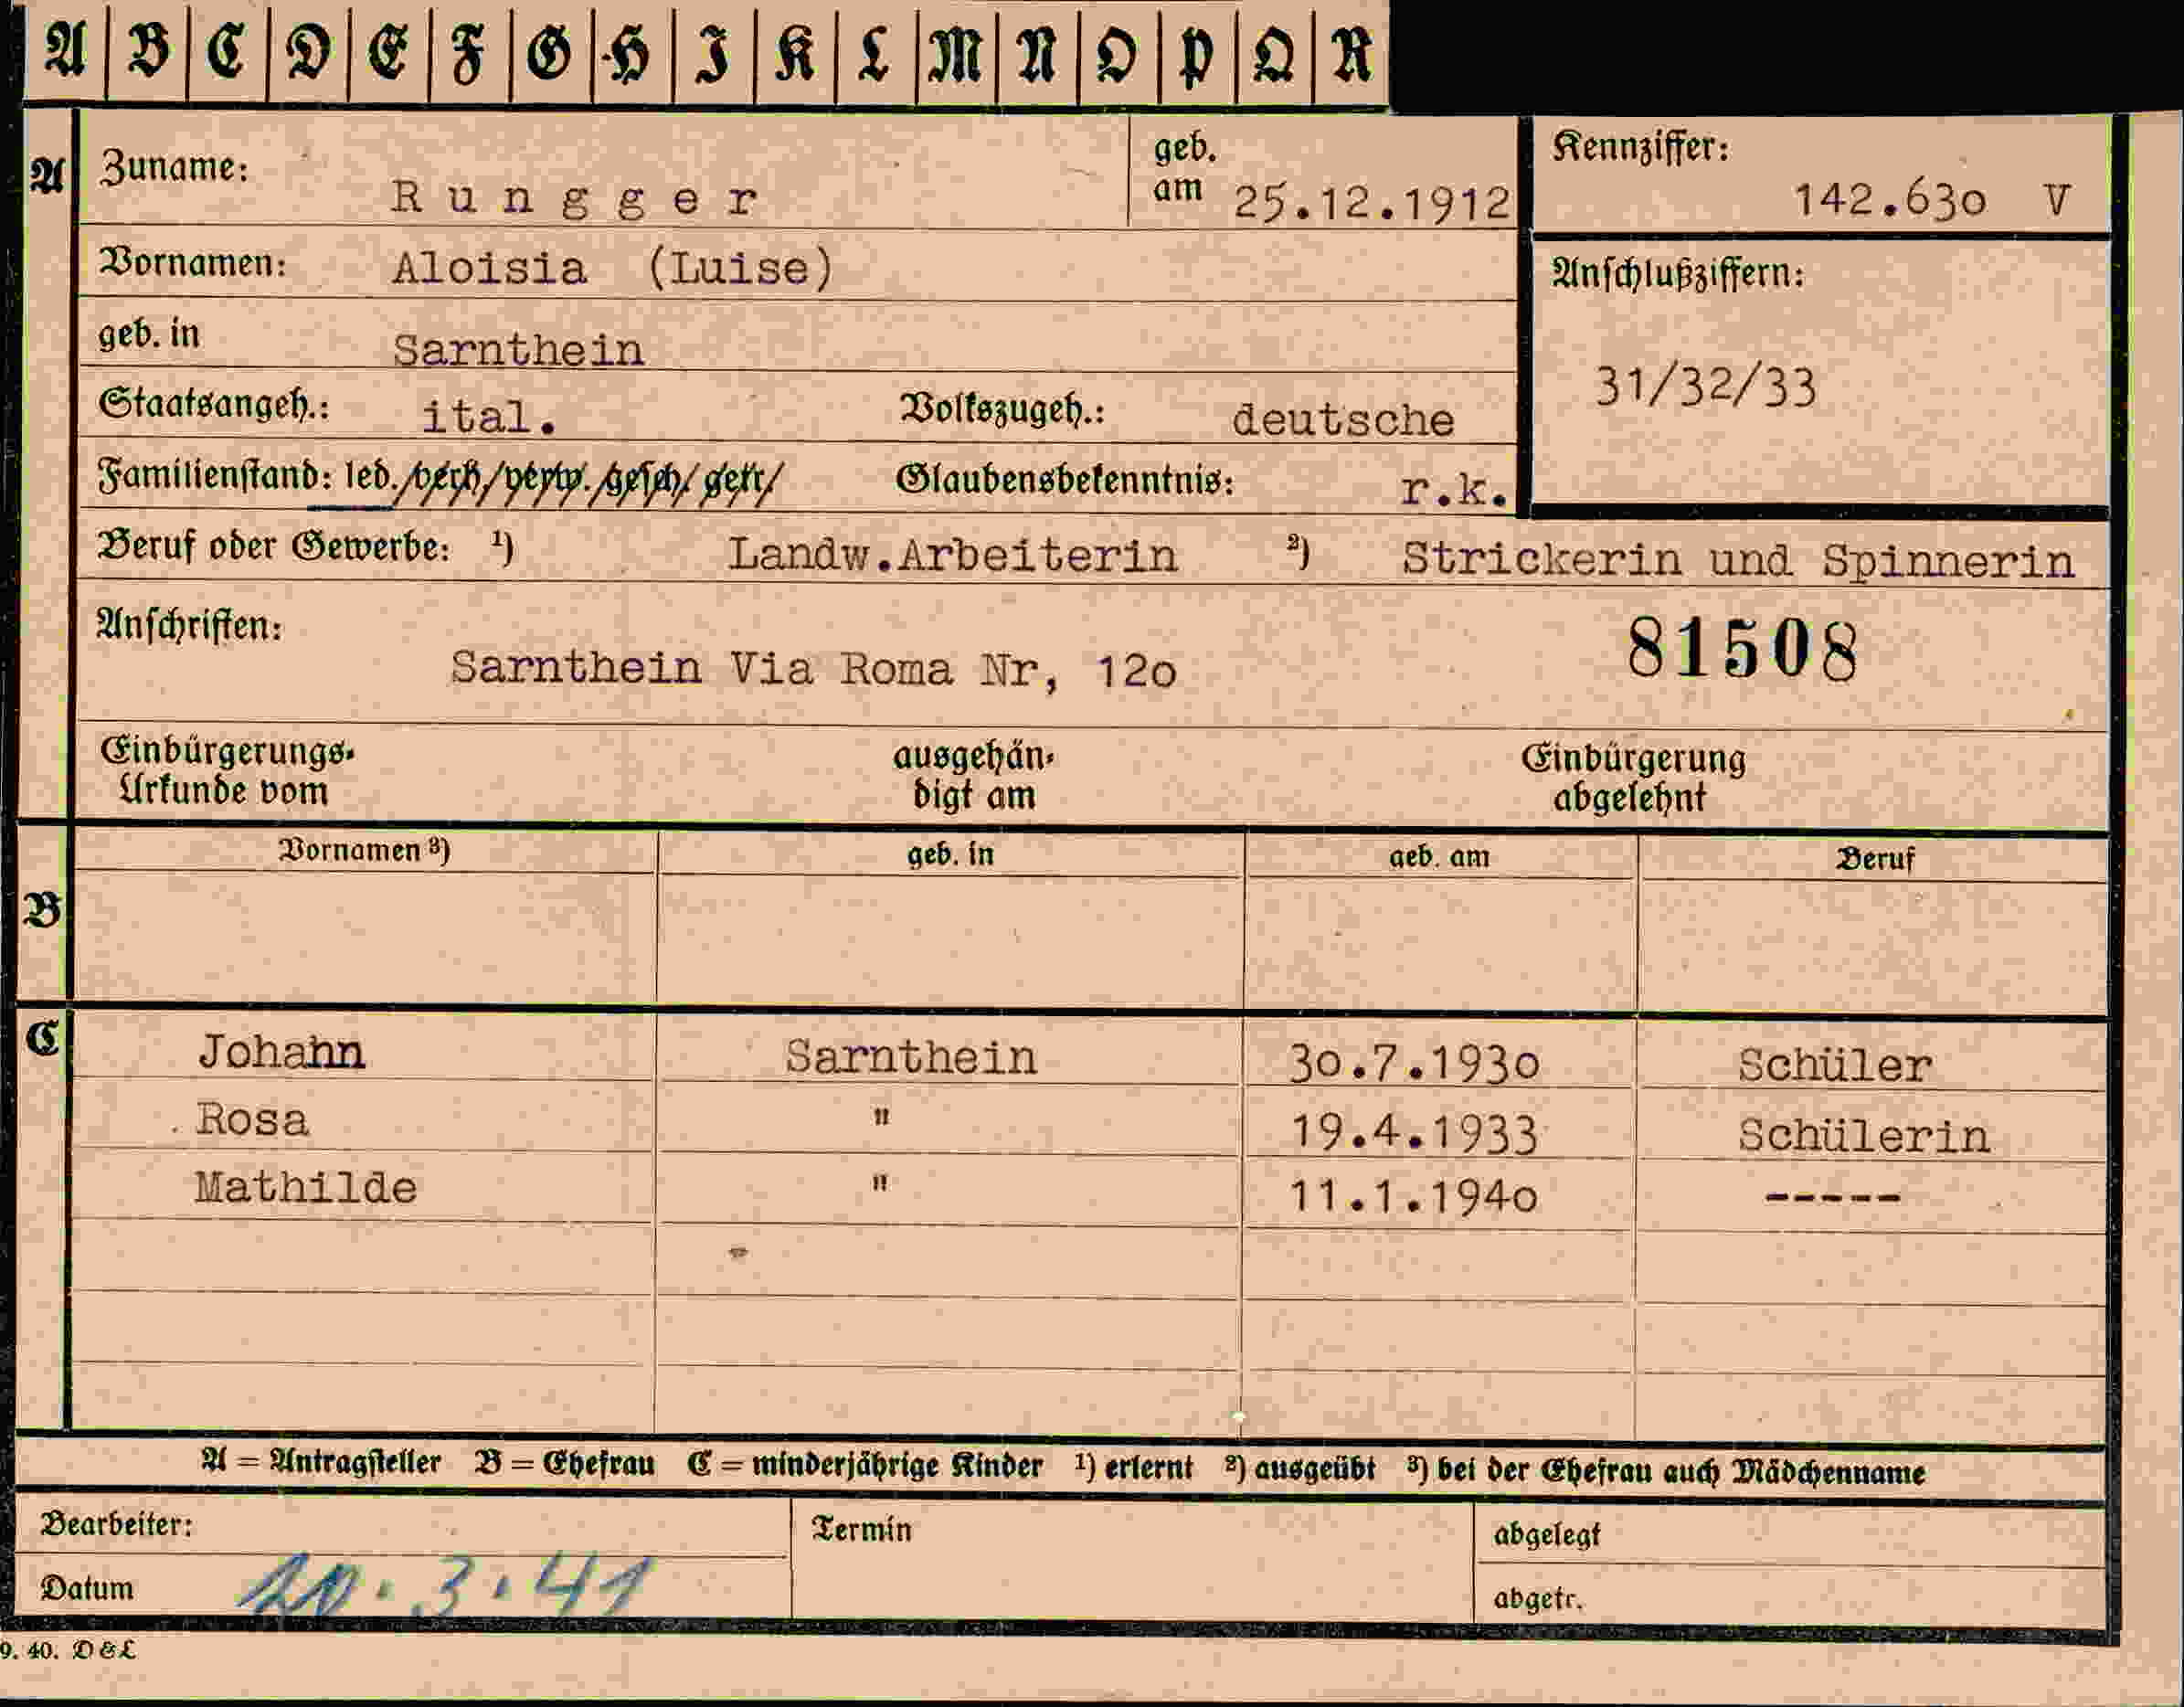 A B C D E F G H I K L M N O P Q R
A Zuname: Rungger geb. am 25.12.1912 Kennziffer: 142.630 V
Vornamen: Aloisia (Luise) Anschlußziffern:
geb. in Sarnthein
31/32/33
Staatsangeh.: ital. Volkszugeh.: deutsche
Familienstand: led./verh/verw./gesch/getr/ Glaubensbekenntnis: r.k.
Beruf oder Gewerbe: ¹) Landw.Arbeiterin ²) Strickerin und Spinnerin
Anschriften: 81508
Sarnthein Via Roma Nr, 12o
Einbürgerungs- ausgehän- Einbürgerung
Urkunde vom digt am abgelehnt
Vornamen ³) geb. in geb. am Beruf
B
C Johann Sarnthein 3o.7.193o Schüler
Rosa " 19.4.1933 Schülerin
Mathilde " 11.1.194o -----
A = Antragsteller B = Ehefrau C = minderjährige Kinder ¹) erlernt ²) ausgeübt ³) bei der Ehefrau auch Mädchenname
Bearbeiter: Termin abgelegt
Datum 20.3.41 abgetr.
9. 40. D & L